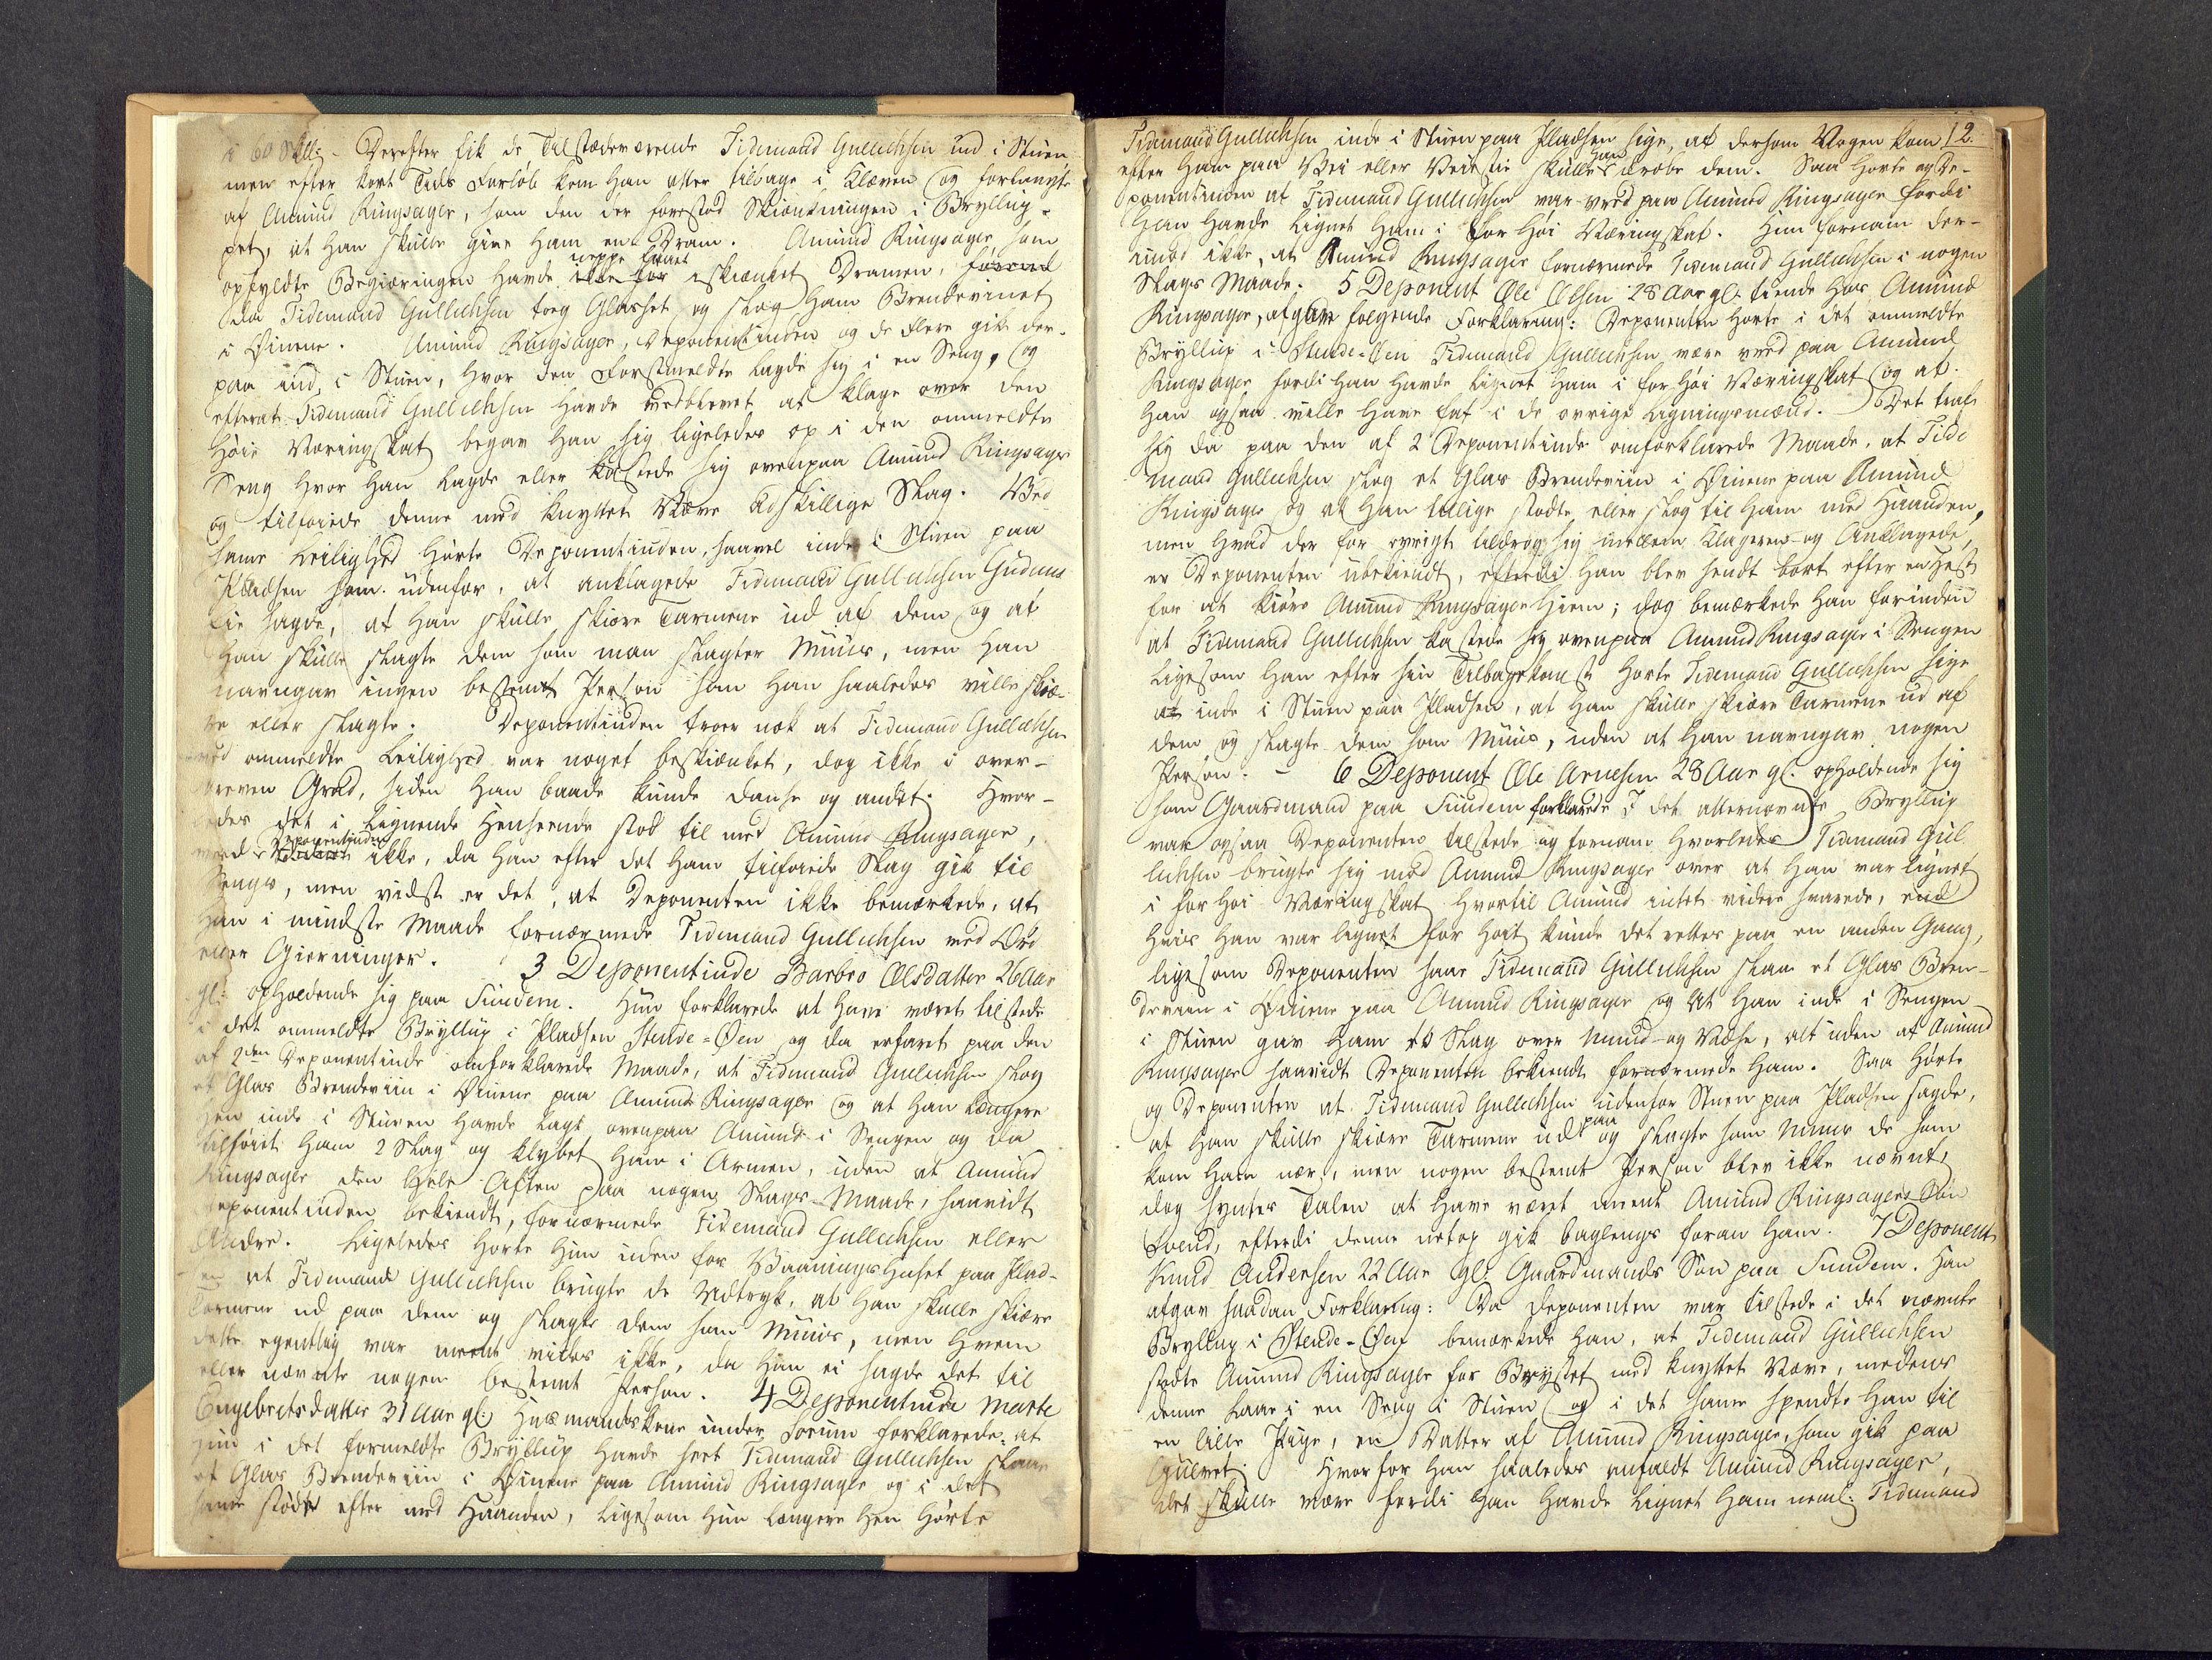 i 60 Skll: Derefter fik de Tilstædeværende Tidemand Gullichsen ind i Stuen
men efter kort Tids Forløb kom Han atter tilbage i Kleven og forlangte
af Amund Ringsager, som den der forestod Skiænkningen i Bryllup-
pet, at Han skulle give Ham en Dram. Amund Ringsager, som
opfyldte Begiæringen havde neppe faaet iskiænket Dramen, førend
da Tidemand Gullichsen tog Glasset og slog Ham Brendevinet
i Øinene. Amund Ringsager, Deponentinden og de Flere gik der-
paa ind i Stuen, hvor den Førstmeldte lagde sig i en Seng, og
efterat Tidemand Gullichsen havde vedblevet at klage over den
Høie Næringskat begav Han sig ligeledes op i den ommeldte
Seng hvor Han lagde eller kastede sig ovenpaa Amund Ringsager
og tilføiede denne med knyttet Næve adskillige Slag. Ved
samme Leilighed Hørte Deponentinden, saavel inde i Stuen paa
Pladsen som udenfor, at anklagede Tidemand Gullichsen Gudens
lie sagde, at Han skulle skiære Tarmene ud af dem og at
Han skulle slagte dem som man slagter Muus, men Han
navngav ingen bestemt Person som Han saaledes ville skiæ-
re eller slagte. Deponentinden troer nok at Tidemand Gullichsen
ved ommeldte Leilighed var noget beskiænket, dog ikke i over-
dreven Grad, siden Han baade kunde danse og andet. Hvor-
ledes det i lignende Henseende stod til med Amund Ringsager,
veed Deponentinden ikke, da Han efter det Ham tilføiede Slag gik til
Sengs, men vidst er det, at Deponenten ikke bemærkede, at
Han i mindste Maade fornærmede Tidemand Gullichsen ved Ord
eller Gierninger. 3 Deponentinde Barbro Olsdatter 26 Aar
gl. opholdende sig paa Sundem. Hun forklarede at Have været tilstede
i det ommeldte Bryllup i Pladsen Stende-Øen og da erfaret paa den
af 2den Deponentinde omforklarede Maade, at Tidemand Gullichsen slog
et Glas Brendeviin i Øinene paa Amund Ringsager og at Han længere
Hen inde i Stuen Havde lagt ovenpaa Amund i Sengen og da
tilføiet Ham 2 Slag og klybet Ham i Armen, uden at Amund
Ringsager den Hele Aften paa nogen Slags Maade, saavidt
Deponentinden bekiendt, fornærmede Tidemand Gullichsen eller
Andre. Ligeledes Hørte Hun uden for Vaaningshuset paa Plad-
sen at Tidemand Gullichsen brugte de Udtryk, at Han skulle skiære
Tarmene ud paa dem og slagte dem som Muus, men Hvem
dette egentlig var meent vides ikke, da Han ei sagde det til
eller nævnte nogen bestemt Person. 4 Deponentinde Marte
Engebretsdatter 31 Aar gl. Huusmandskone under Sorum forklarede: at
Hun i det formeldte Bryllup Havde seet Tidemand Gullichsen slaae
et Glas Brendeviin i Øinene paa Amund Ringsager og i det
samme stødte efter med Haanden, ligesom Hun længere Hen Hørte
12.
Tidemand Gullichsen inde i Stuen paa Pladsen sige, at dersom Nogen kom
efter Ham paa Vei eller Veiestie skulle Han dræbe dem. Saa Hørte og De-
ponentinden at Tidemand Gullichsen var vred paa Amund Ringsager fordi
Han Havde lignet Ham i for Høi Næringskat. Hun fornam der-
imod ikke, at Amund Ringsager fornærmede Tidemand Gullichsen i nogen
Slags Maade. 5 Deponent Ole Olsen 28 Aar gl. tiende Hos Amund
Ringsager, afgav følgende Forklaring: Deponenten Hørte i det ommeldte
Bryllup i Stende-Øen Tidemand Gullichsen være vred paa Amund
Ringsager fordi Han Havde lignet Ham i for Høi Næringskat og at
Han ogsaa ville Have fat i de øvrige Ligningsmænd. Det traf
sig da paa den af 2 Deponentinde omforklarede Maade, at Tide
mand Gullichsen slog et Glas Brendeviin i Øinene paa Amund
Ringsager og at Han tillige stødte eller slog til Ham med Haanden,
men Hvad der for øvrigt tildrog sig mellem Klageren og Anklagede,
er Deponenten ubekiendt, efterdi Han blev sendt bort efter en Hest
for at kiøre Amund Ringsager Hiem; dog bemærkede Han forinden
at Tidemand Gullichsen kastede sig ovenpaa Amund Ringsager i Sengen
ligesom Han efter sin Tilbagekomst Hørte Tidemand Gullichsen sige
at inde i Stuen paa Pladsen, at Han skulle skiære Tarmene ud af
dem og slagte dem som Muus, uden at Han navngav nogen
Person. - 6 Deponent Ole Arnesen 28 Aar gl. opholdende sig
som Gaardmand paa Sundem forklarede I det alternævnte Bryllup
var ogsaa Deponenten tilstede og fornam Hvorledes Tidemand Gul
lichsen brugte sig mod Amund Ringsager over at Han var lignet
i for Høi Næringskat Hvortil Amund intet videre svarede, end
Hvis Han var lignet for Høit kunde det rettes paa en anden Gang,
ligesom Deponenten saae Tidemand Gullichsen slaae et Glas Bren-
deviin i Øinene paa Amund Ringsager og At Han inde i Sengen
i Stuen gav Ham to Slag over Mund og Næse, alt uden at Amund
Ringsager saavidt Deponenten bekiendt fornærmede Ham. Saa Hørte
og Deponenten at Tidemand Gullichsen udenfor Stuen paa Pladsen sagde,
at Han skulle skiære Tarmene ud paa og slagte som Muus de som
kom Ham nær, men nogen bestemt Person blev ikke nævnt,
dog syntes Talen at Have været meent Amund Ringsagers Søn
Svend, efterdi denne netop gik baglengs foran Ham. 7 Deponent
Knud Andersen 22 Aar gl. Gaardmands Søn paa Sundem. Han
afgav saadan Forklaring: Da Deponenten var tilstede i det nævnte
Bryllup i Stende-Øen bemærkede Han, at Tidemand Gullichsen
stødte Amund Ringsager for Brystet med knyttet Næve, medens
denne laae i en Seng i Stuen og i det samme spendte Han til
en lille Pige, en Datter af Amund Ringsager, som gik paa
Gulvet. Hvorfor Han saaledes anfaldt Amund Ringsager,
det skulle være fordi Han Havde lignet Ham neml: Tidemand